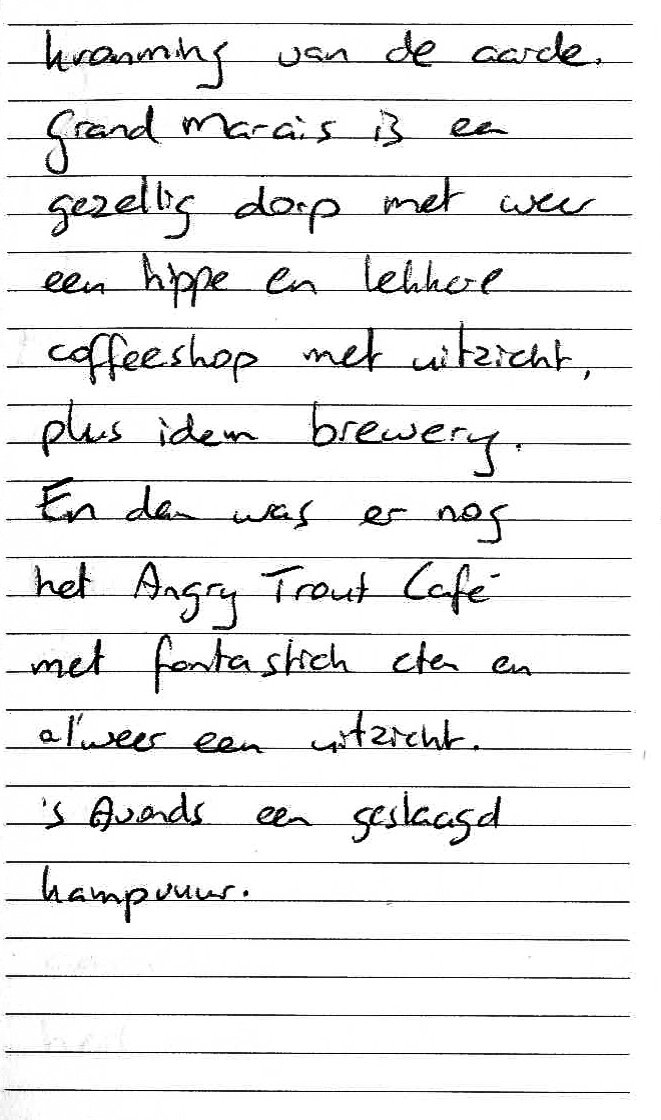 kromming van de aarde.
Grand Marais is een
gezellig dorp met weer
een hippe en lekkere
coffeeshop met uitzicht,
plus idem brewery.
En dan was er nog
het Angry Trout Café
met fantastich eten en
al'weer een uitzicht.
's Avonds een geslaagd
kampvuur.